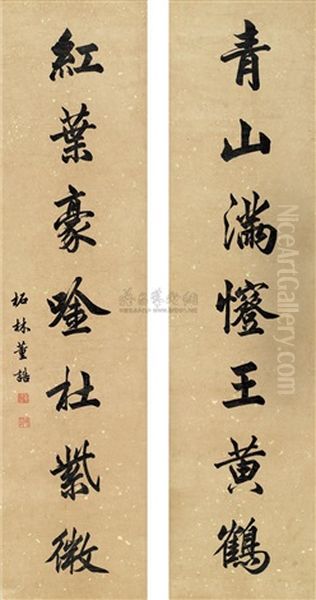 青山滿王黃鶴
紅葉豪唫杜紫微
柘林董誥
NiceArtGallery.com